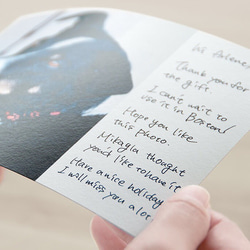 Hi Arlene,
Thank you for
the gift.
I can't wait to
use it in Boston!
Hope you like
this photo.
Mikayla thought
you'd like to have it
Have a nice holiday
I will miss you a lot